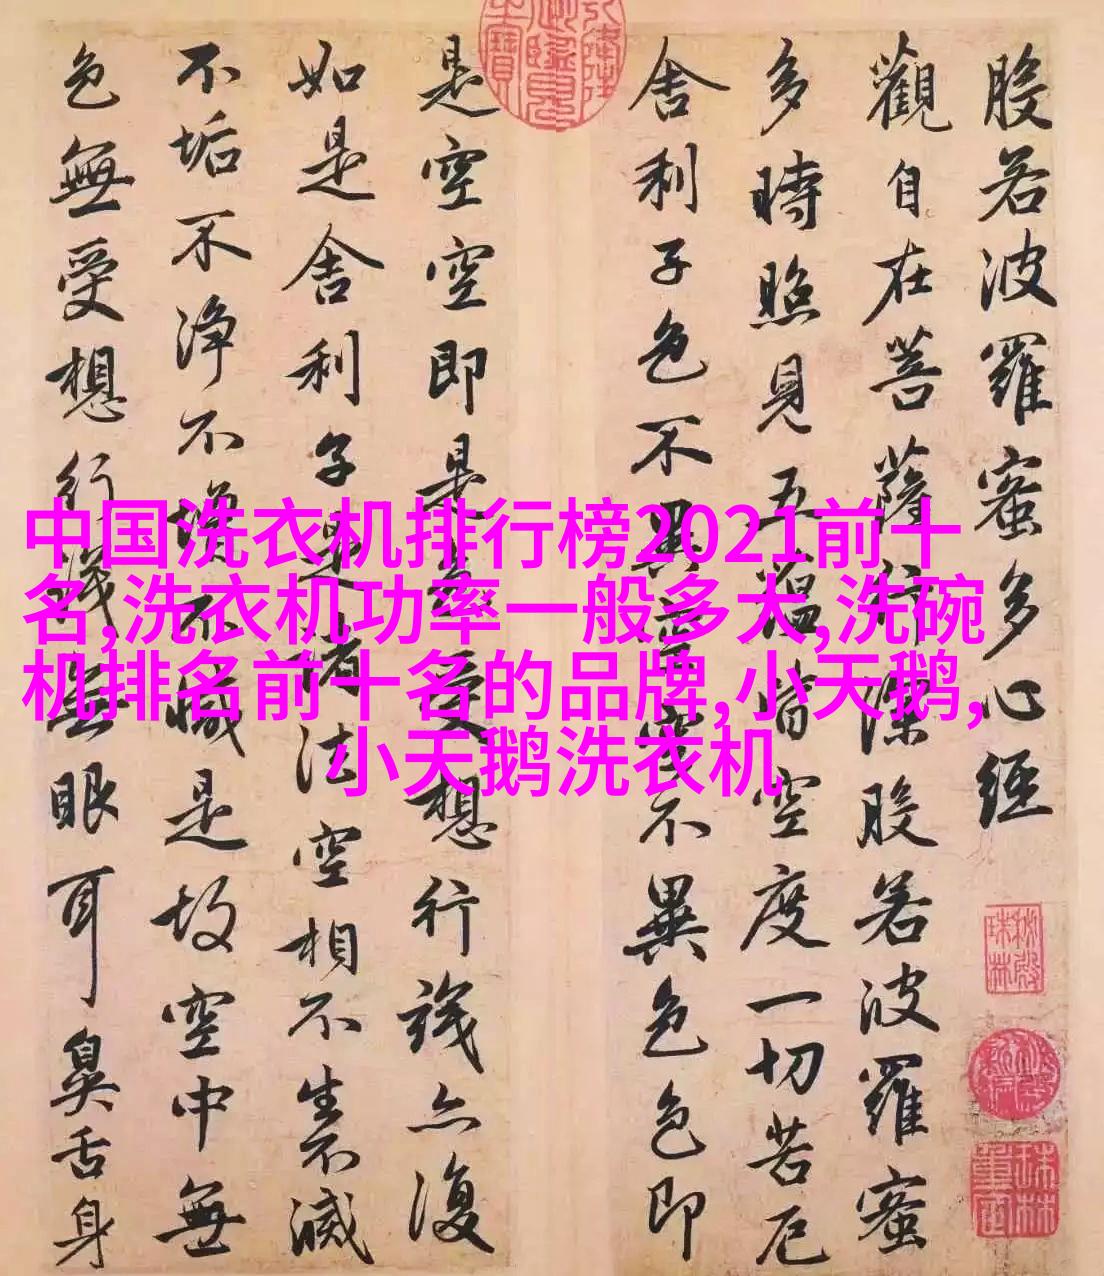 般若波羅蜜多心經
觀自在菩薩行深般若波羅蜜
多時照見五蘊皆空度一切苦厄
舍利子色不異空空不異色色即
是空空即是色受想行識亦復
如是舍利子是諸法空相不生不滅
不垢不淨不增不減是故空中無
色無受想行識無眼耳鼻舌身
中国洗衣机排行榜2021前十
名,洗衣机功率一般多大,洗碗
机排名前十名的品牌,小天鹅,
小天鹅洗衣机